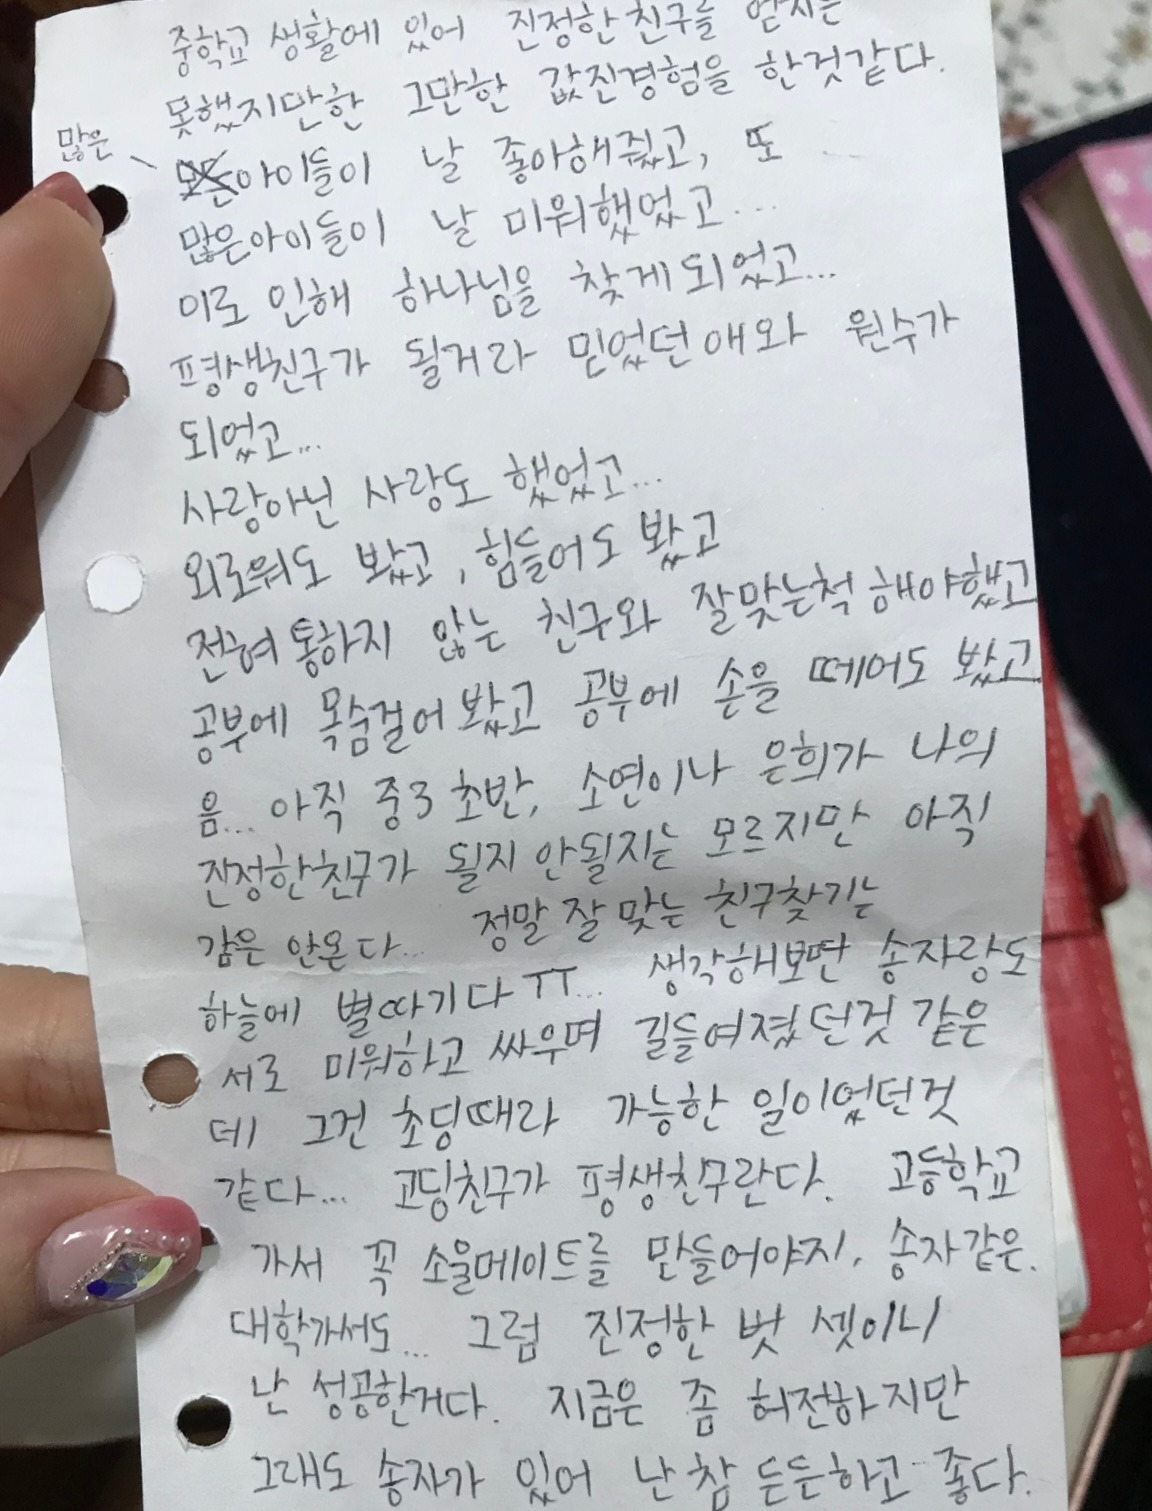 중학교 생활에 있어 진정한 친구를 얻지는
못했지만한 그만한 값진경험을 한것같다.
많은
아이들이 날 좋아해줬고, 또
많은아이들이 날 미워했었고...
이로 인해 하나님을 찾게되었고...
평생친구가 될거라 믿었던애와 원수가
되었고...
사랑아닌 사랑도 했었고...
외로워도 봤고, 힘들어도 봤고
전혀통하지 않는 친구와 잘맞는척 해야했고
공부에 목숨걸어봤고 공부에 손을 떼어도 봤고
음... 아직 중3 초반, 소연이나 은희가 나의
진정한친구가 될지 안될지는 모르지만 아직
감은 안온다... 정말 잘 맞는 친구찾기는
하늘에 별따기다 ㅠ... 생각해보면 송자랑도
서로 미워하고 싸우며 길들여졌던것 같은
데 그건 초딩때라 가능한 일이었던것
같다... 고딩친구가 평생친구란다. 고등학교
가서 꼭 소울메이트를 만들어야지. 송자같은.
대학가서도... 그럼 진정한 벗 셋이니
난 성공한거다. 지금은 좀 허전하지만
그래도 송자가 있어 난 참 든든하고 좋다.